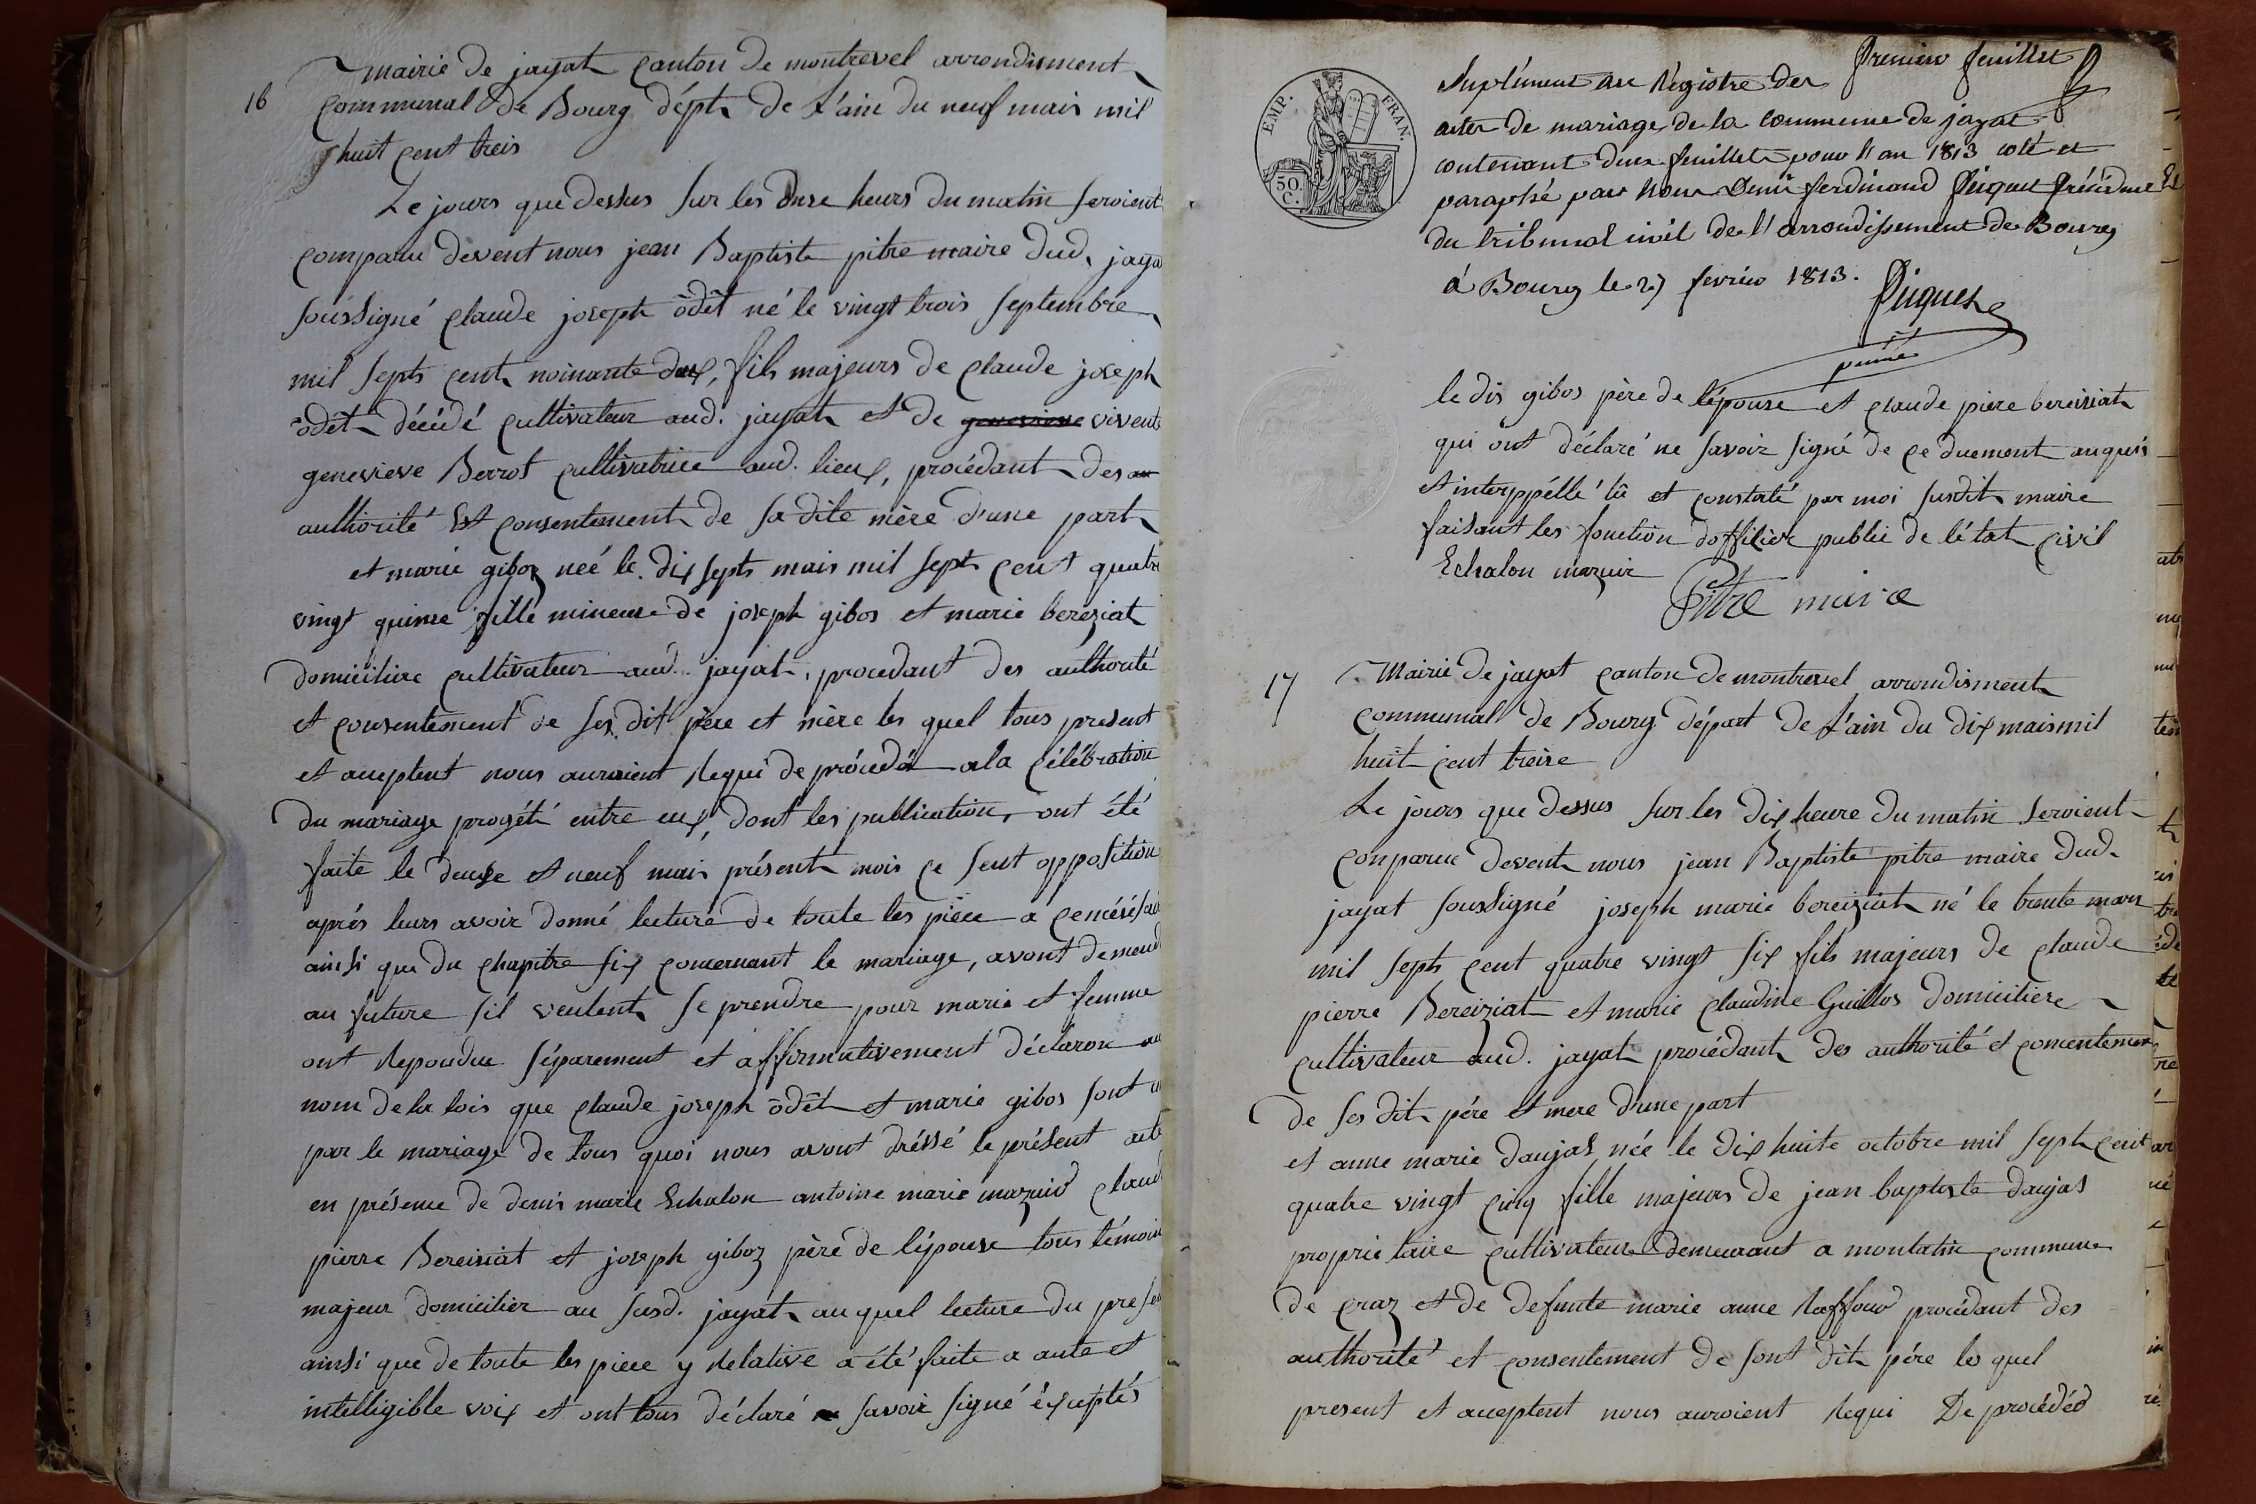 16
mairie de jayat canton de montrevel arrondisment
communal de Bourg dépt de l'ain du neuf mais mil
huit cent treis
Le jours que dessus sur les onse heurs du matin seroient
comparu devent nous jean Baptiste pitre maire dud. jaya
soussigné claude joseph ōdēt né le vingt trois septembre
mil septs cent noinante deux, fils majeurs de claude joseph
ōdēt décédé cultivateur aud. jayat et de genevieve vivent
genevieve Berrot cultivatrice aud. lieux, procédant des au
authorité Et consentement de sa dite mère d'une part
et marie giboz neé le dix septs mais mil sept cent quatre
vingt quinse fille mineure de joseph gibos et marie bereziat
domicilire cultivateur aud. jayat, procedant des authorité
et consentement de ses dit père et mère les quel tous present
et aceptent nous auroient Requi de procédé a la célébration
du mariage progété entre eux, dont les publication, ont été
faite le deuxe et neuf mais présent mois ce sent opposition
après leurs avoir donné lecture de toute les pièce a cenécésair
ainsi que du chapitre six concernant le mariage, avont demend
au future sil veulent se prendre pour marie et femme
ont Repondue séparement et affirmativement déclaron au
nom de la lois que claude joseph ōdēt et marie gibos sont u
par le mariage de tous quoi nous avont dréssé le présent acte
en présence de denis marie Echalon antoine marie mazuir claud
pierre Bereiziat et joseph giboz père de l'épouse tous témoin
majeur domicilier au susd. jayat au quel lecture du presen
ainsi que de toute les piece y Relative a été faite a aute et
intelligible voix et ont tous déclaré savoir signé éxceptés
EMP. FRAN.
50 C.
Premier feuillet
Suplément au Régistre des
actes de mariage de la commune de jayat
contenant deux feuillets pour l'an 1813 coté et
paraphé par nous Denis ferdinand Piquet Présidant
du tribunal civil de l'arrondissement de Bourg
à Bourg le 27 fevrier 1813.
Piquet
le dis gibos père de lépouse et claude piere bereisiat
qui ont déclaré ne savoir signé de ce duement anquis
et interppéllé lû et constaté par moi susdit maire
faisant les fonction d'officier public de l'état civil
Echalon mazuir
Pitre maire
17
Mairie de jayat canton de montrevel arrondisment
communal de Bourg départ de l'ain du dix mais mil
huit cent treise
Le jours que dessus sur les dix heure du matin seroient
conparue devent nous jean Baptiste pitre maire dud.
jayat soussigné joseph marie bereiziat né le trente mars
mil septs cent quatre vingt six fils majeurs de claude
pierre Bereiziat et marie claudine Guillos domicitiere
cultivateur aud. jayat procédant des authorité et consentemen
de ses dit père et mere d'une part
et anne marie daujas née le dix huite octobre mil sept cent
quatre vingt cinq fille majeurs de jean baptiste daujas
proprietaire cultivateur demeurant a montatin commune
de craz et de defunte marie anne Raffour procédant des
authorité et consentement de sont dit père le quel
present et aceptent nous auroient Requi De procédéd